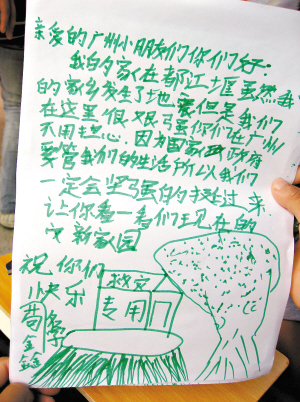 亲爱的广州小朋友们你们好.
我的家在都江堰虽然我
的家乡发生了地震但是我们
在这里很坚强你们在广州
不用担心.因为国家政府
要管我们的生活所以我们
一定会坚强的挺过来.
让你看一看们现在的
新家园
祝你们
快乐
救灾
专用